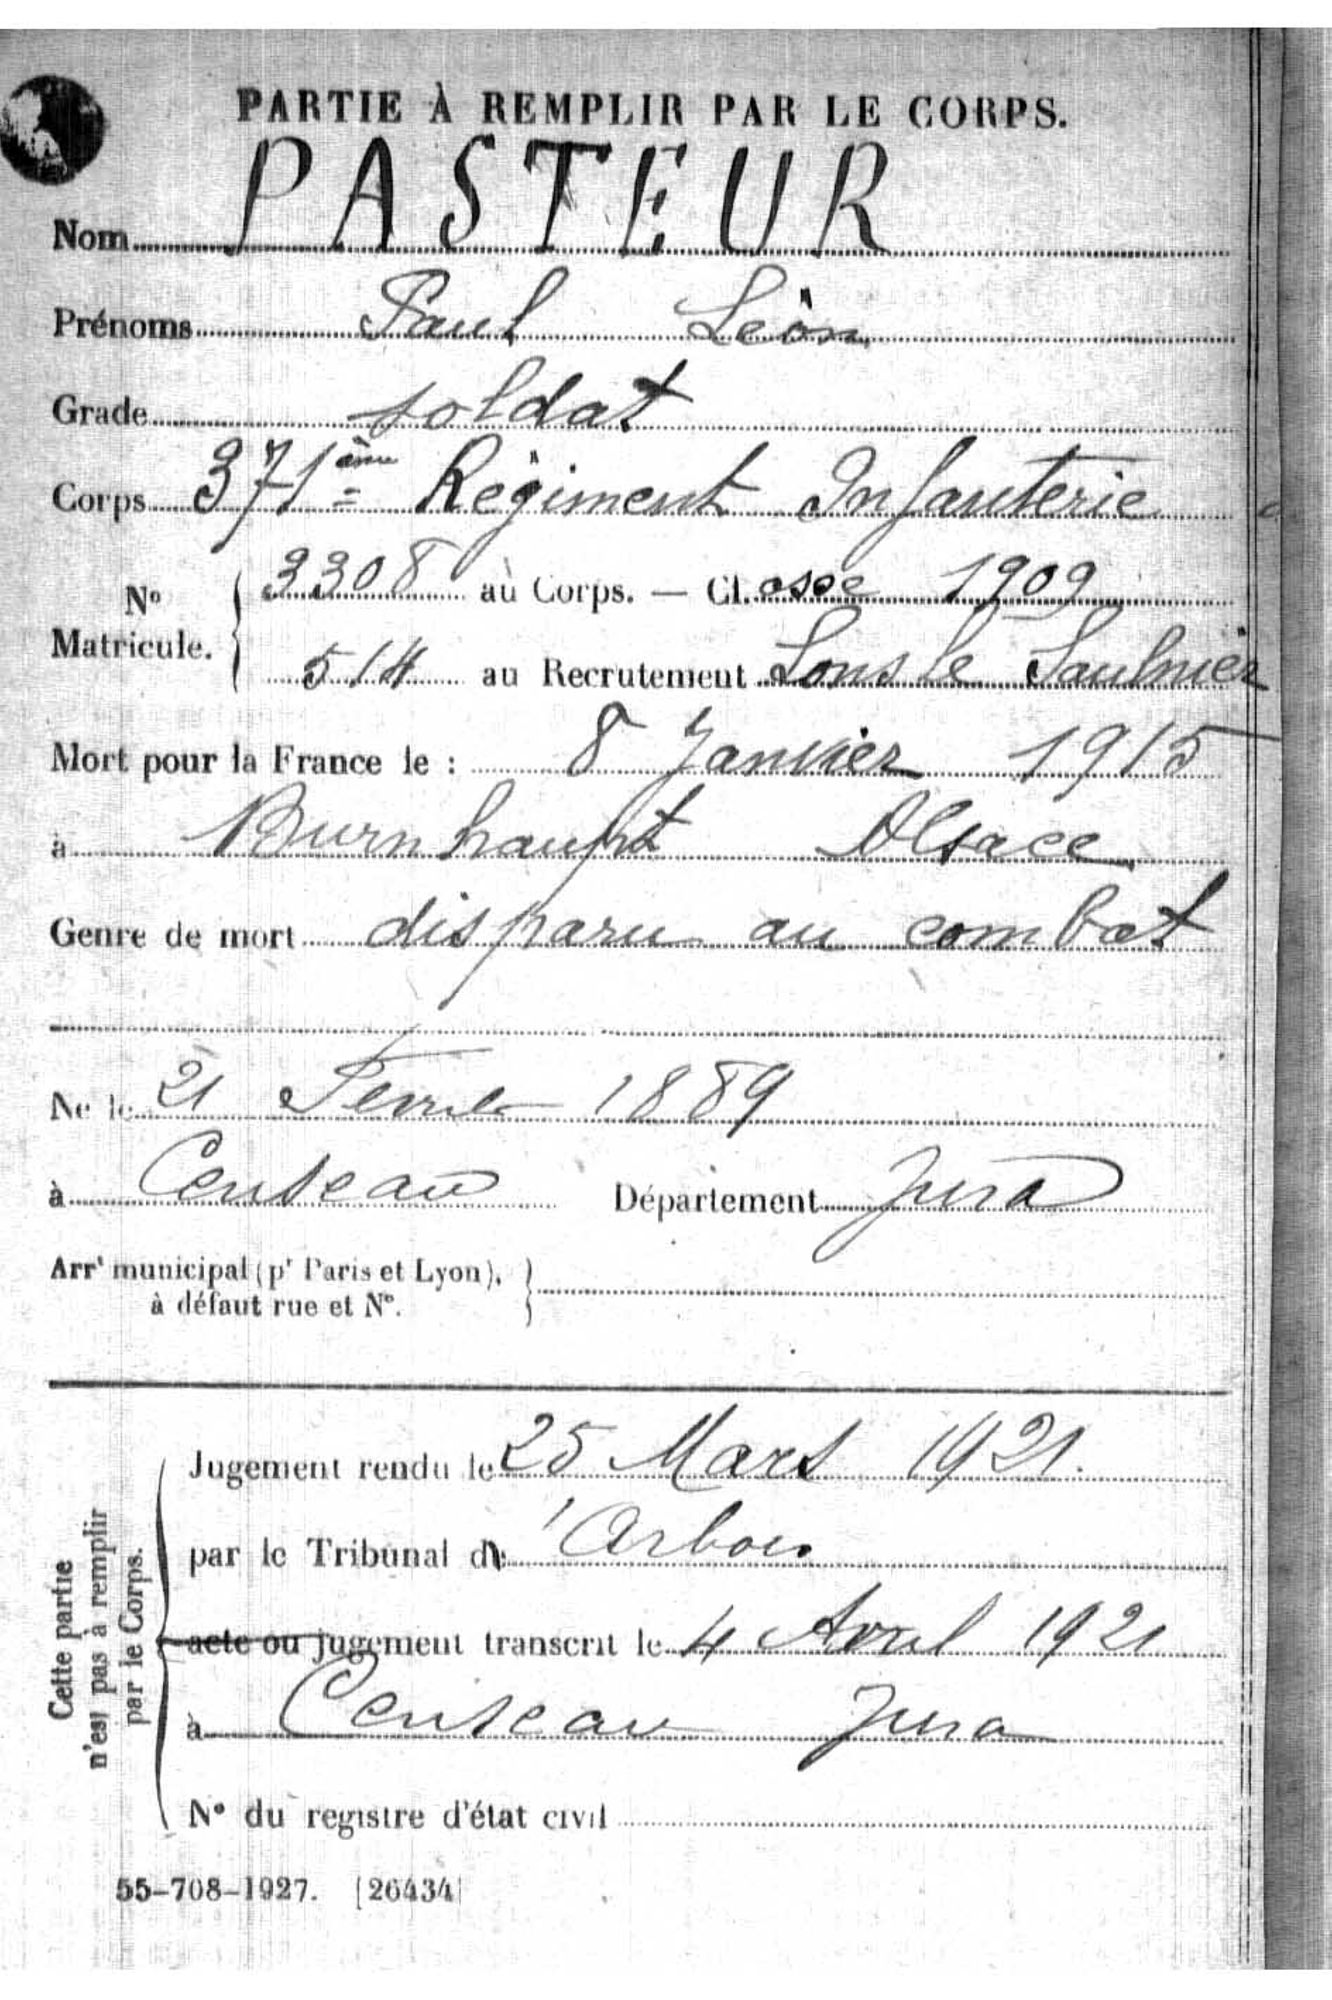 PARTIE À REMPLIR PAR LE CORPS.
Nom PASTEUR
Prénoms Paul Léon
Grade soldat
Corps 371ème Régiment Infanterie
Nº Matricule. 3308 au Corps. — Cl. asse 1909
514 au Recrutement Lons le Saulnier
Mort pour la France le : 8 Janvier 1915
à Burnhaupt Alsace
Genre de mort disparu au combat
Né le 21 Février 1889
à Censeau Département Jura
Arrt municipal (pr Paris et Lyon),
à défaut rue et Nº.
Cette partie
n'est pas à remplir
par le Corps.
Jugement rendu le 25 Mars 1921.
par le Tribunal d'Arbois
acte ou jugement transcrit le 4 Avril 1921
à Censeau Jura
Nº du registre d'état civil
55-708-1927. [26434]